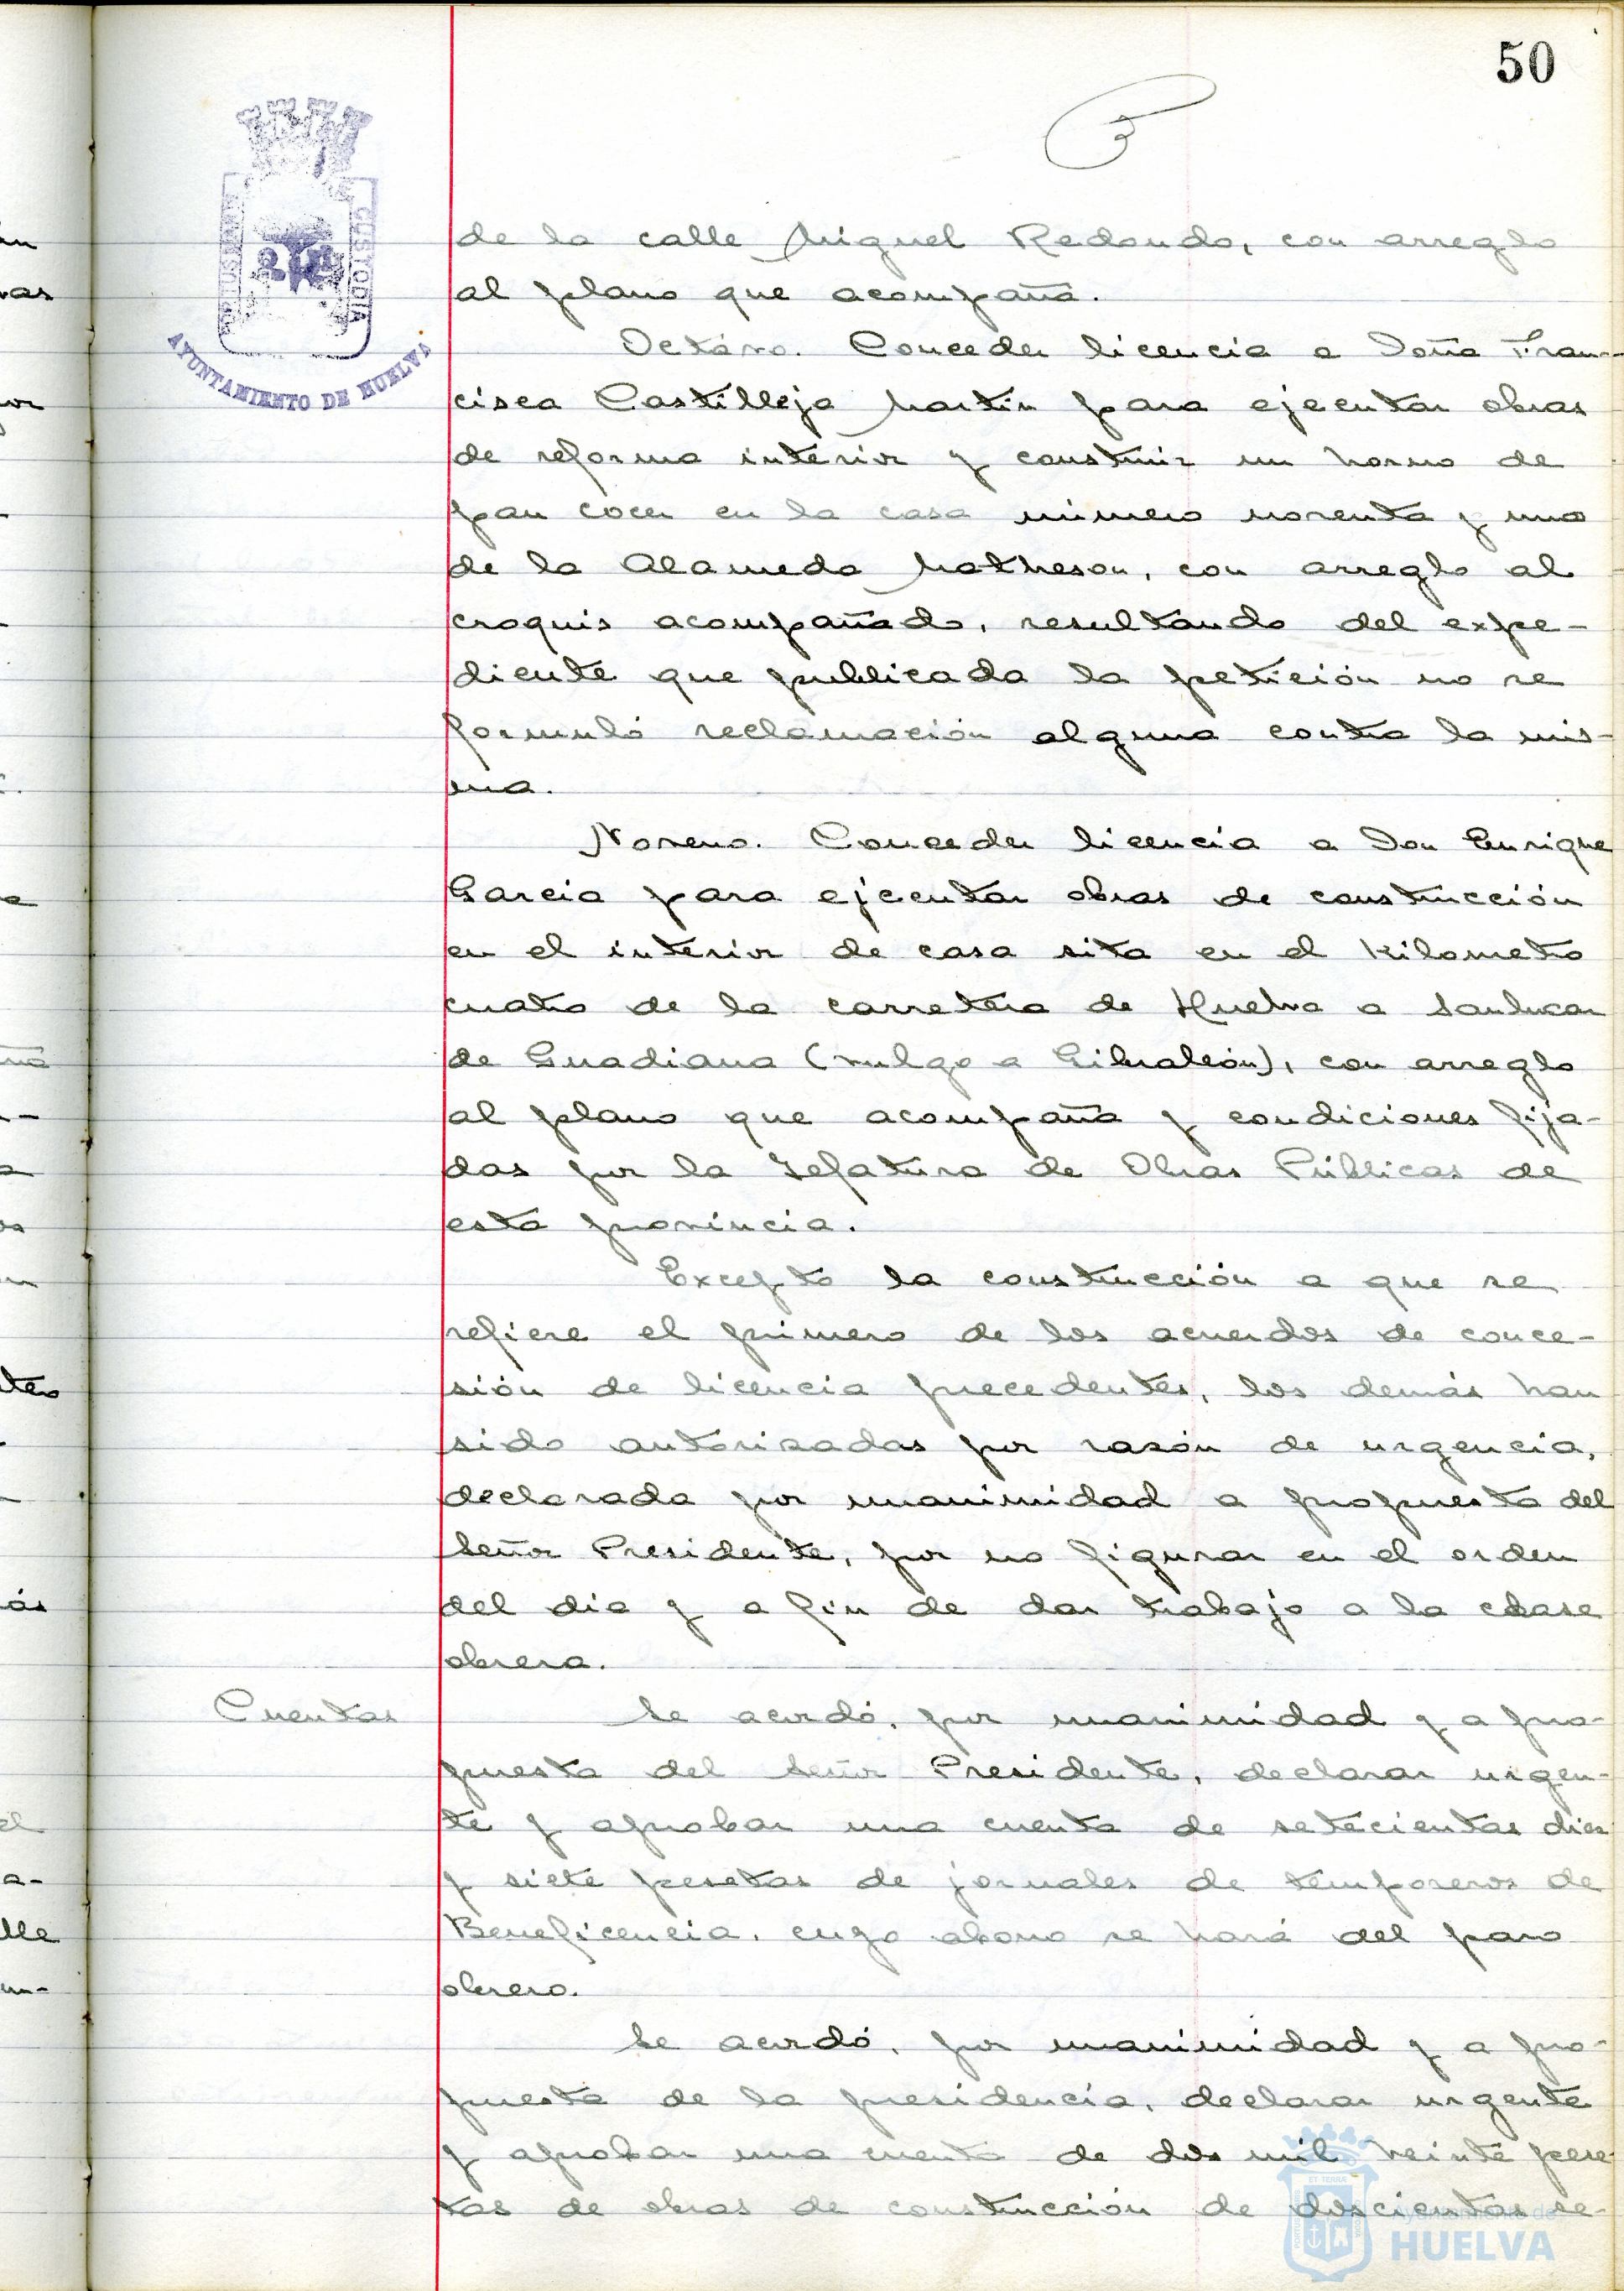 50
PORTUS MARIS
CUSTODIA
AYUNTAMIENTO DE HUELVA
de la calle Miguel Redondo, con arreglo
al plano que acompaña.
Octávo. Conceder licencia a Doña Fran-
cisca Castilleja Martín para ejecutar obras
de reforma interior y construir un horno de
pan cocer en la casa número noventa y uno
de la Alameda Matheson, con arreglo al
croquis acompañado, resultando del expe-
diente que publicada la petición no se
formuló reclamación alguna contra la mis-
ma.
Noveno. Conceder licencia a Don Enrique
Garcia para ejecutar obras de construcción
en el interior de casa sita en el kilometro
cuatro de la carretera de Huelva a Sanlucar
de Guadiana (vulgo a Gibraleón), con arreglo
al plano que acompaña y condiciones fija-
das por la Jefatura de Obras Públicas de
esta provincia.
Excepto la construcción a que se
refiere el primero de los acuerdos de conce-
sión de licencia precedentes, los demás han
sido autorizadas por razón de urgencia,
declarada por unanimidad a propuesta del
Señor Presidente, por no figurar en el orden
del dia y a fin de dar trabajo a la clase
obrera.
Cuentas
Se acordó, por unanimidad y a pro-
puesta del Señor Presidente, declarar urgen-
te y aprobar una cuenta de setecientas diez
y siete pesetas de jornales de temporeros de
Beneficencia, cuyo abono se hará del paro
obrero.
Se acordó, por unanimidad y a pro-
puesta de la presidencia, declarar urgente
y aprobar una cuenta de dos mil veinte pese-
tas de obras de construcción de doscientas se-
Ayuntamiento de
HUELVA